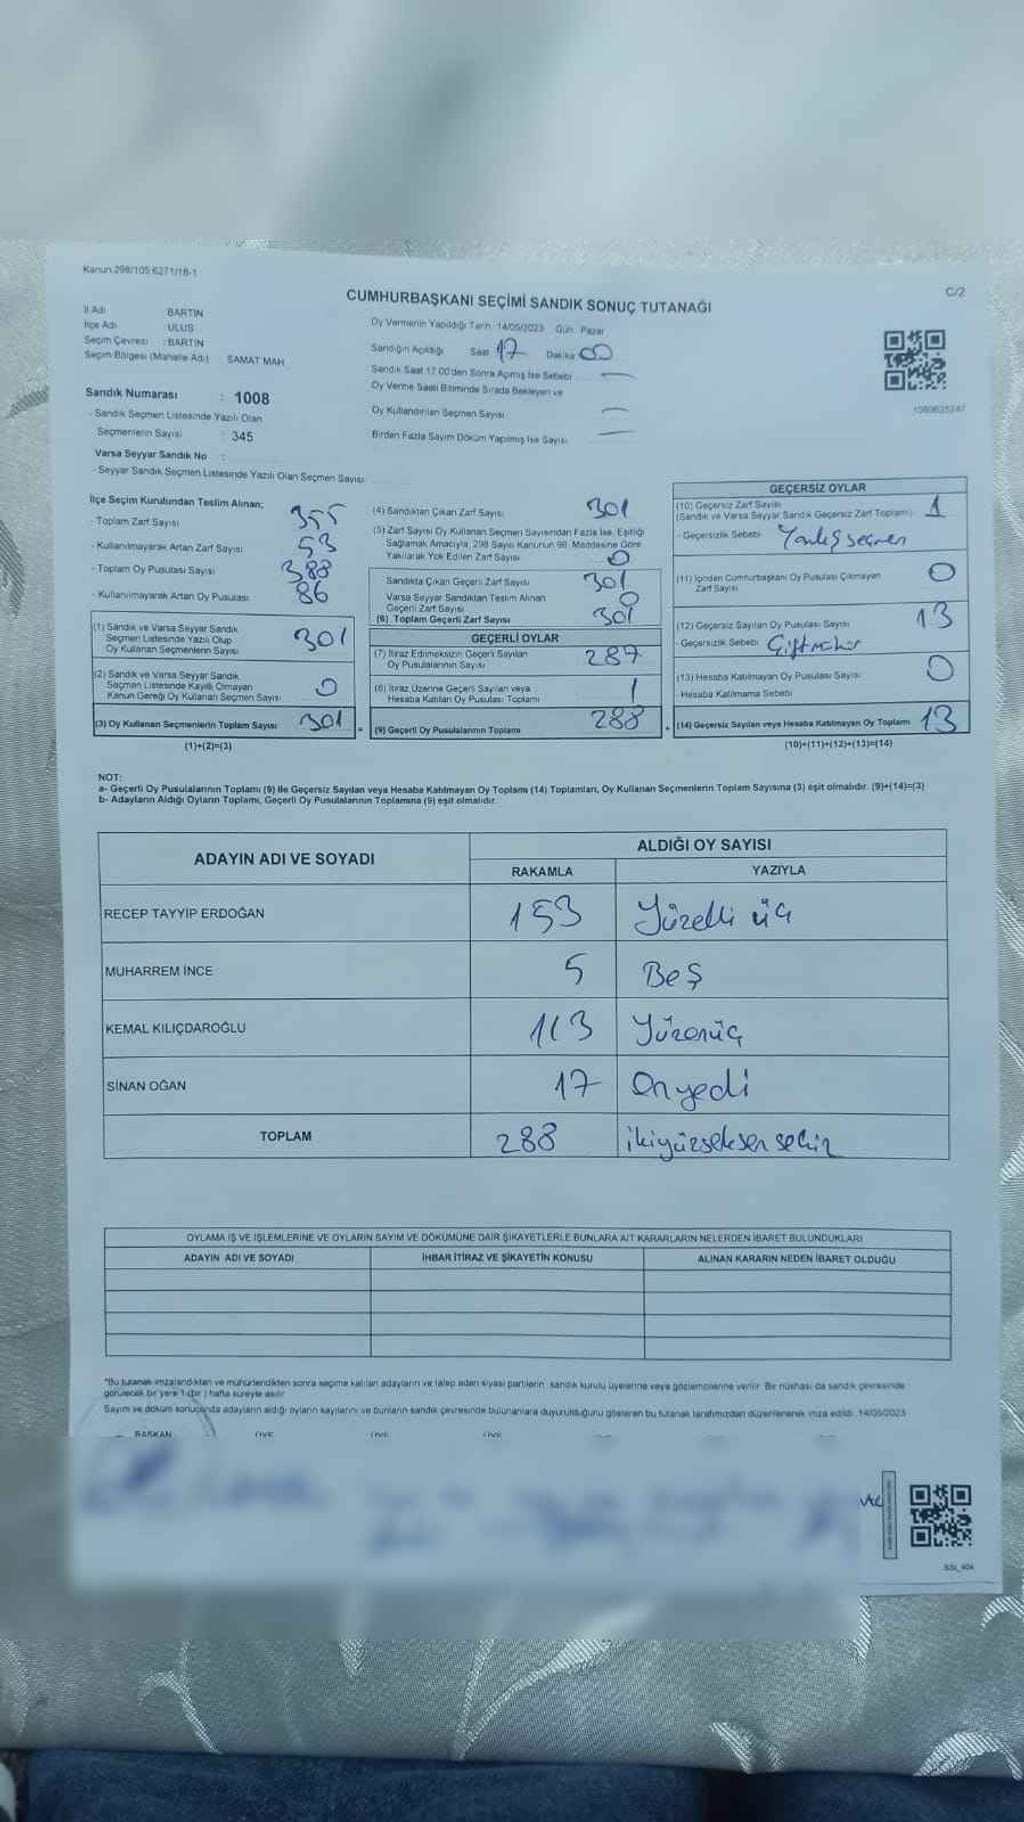 Kanun 298/105 6271/18-1
C/2
CUMHURBAŞKANI SEÇİMİ SANDIK SONUÇ TUTANAĞI
İl Adı BARTIN
İlçe Adı ULUS
Seçim Çevresi : BARTIN
Seçim Bölgesi (Mahalle Adı) SAMAT MAH
Sandık Numarası : 1008
- Sandık Seçmen Listesinde Yazılı Olan
Seçmenlerin Sayısı : 345
Varsa Seyyar Sandık No :
- Seyyar Sandık Seçmen Listesinde Yazılı Olan Seçmen Sayısı
Oy Vermenin Yapıldığı Tarih : 14/05/2023 Gün : Pazar
Sandığın Açıldığı Saat 17 Dakika 00
Sandık Saat 17.00'den Sonra Açmış İse Sebebi —
Oy Verme Saati Bitiminde Sırada Bekleyen ve
Oy Kullandırılan Seçmen Sayısı —
Birden Fazla Sayım Döküm Yapılmış İse Sayısı —
1080625247
İlçe Seçim Kurulundan Teslim Alınan;
- Toplam Zarf Sayısı 355
- Kullanılmayarak Artan Zarf Sayısı 53
- Toplam Oy Pusulası Sayısı 388
- Kullanılmayarak Artan Oy Pusulası 86
(1) Sandık ve Varsa Seyyar Sandık
Seçmen Listesinde Yazılı Olup
Oy Kullanan Seçmenlerin Sayısı 301
(2) Sandık ve Varsa Seyyar Sandık
Seçmen Listesinde Kayıtlı Olmayan
Kanun Gereği Oy Kullanan Seçmen Sayısı 0
(3) Oy Kullanan Seçmenlerin Toplam Sayısı 301
(1)+(2)=(3)
(4) Sandıktan Çıkan Zarf Sayısı 301
(5) Zarf Sayısı Oy Kullanan Seçmen Sayısından Fazla İse, Eşitliği
Sağlamak Amacıyla, 298 Sayılı Kanunun 98. Maddesine Göre
Yakılarak Yok Edilen Zarf Sayısı 0
Sandıkta Çıkan Geçerli Zarf Sayısı 301
Varsa Seyyar Sandıktan Teslim Alınan
Geçerli Zarf Sayısı 0
(6) Toplam Geçerli Zarf Sayısı 301
GEÇERLİ OYLAR
(7) İtiraz Edilmeksizin Geçerli Sayılan
Oy Pusulalarının Sayısı 287
(8) İtiraz Üzerine Geçerli Sayılan veya
Hesaba Katılan Oy Pusulası Toplamı 1
(9) Geçerli Oy Pusulalarının Toplamı 288
GEÇERSİZ OYLAR
(10) Geçersiz Zarf Sayısı
(Sandık ve Varsa Seyyar Sandık Geçersiz Zarf Toplamı) 1
- Geçersizlik Sebebi Yanlış seçmen
(11) İçinden Cumhurbaşkanı Oy Pusulası Çıkmayan
Zarf Sayısı 0
(12) Geçersiz Sayılan Oy Pusulası Sayısı 13
- Geçersizlik Sebebi Çift mühür
(13) Hesaba Katılmayan Oy Pusulası Sayısı 0
Hesaba Katılmama Sebebi
(14) Geçersiz Sayılan veya Hesaba Katılmayan Oy Toplamı 13
(10)+(11)+(12)+(13)=(14)
NOT:
a- Geçerli Oy Pusulalarının Toplamı (9) ile Geçersiz Sayılan veya Hesaba Katılmayan Oy Toplamı (14) Toplamları, Oy Kullanan Seçmenlerin Toplam Sayısına (3) eşit olmalıdır. (9)+(14)=(3)
b- Adayların Aldığı Oyların Toplamı, Geçerli Oy Pusulalarının Toplamına (9) eşit olmalıdır.
ADAYIN ADI VE SOYADI ALDIĞI OY SAYISI
RAKAMLA YAZIYLA
RECEP TAYYİP ERDOĞAN 153 Yüzelli üç
MUHARREM İNCE 5 Beş
KEMAL KILIÇDAROĞLU 113 Yüzonüç
SİNAN OĞAN 17 Onyedi
TOPLAM 288 ikiyüzseksen sekiz
OYLAMA İŞ VE İŞLEMLERİNE VE OYLARIN SAYIM VE DÖKÜMÜNE DAİR ŞİKAYETLERLE BUNLARA AİT KARARLARIN NELERDEN İBARET BULUNDUKLARI
ADAYIN ADI VE SOYADI İHBAR İTİRAZ VE ŞİKAYETİN KONUSU ALINAN KARARIN NEDEN İBARET OLDUĞU
*Bu tutanak imzalandıktan ve mühürlendikten sonra seçime katılan adayların ve talep eden siyasi partilerin sandık kurulu üyelerine veya gözlemcilerine verilir. Bir nüshası da sandık çevresinde
görülecek bir yere 1 (bir) hafta süreyle asılır
Sayım ve döküm sonucunda adayların aldığı oyların sayılarını ve bunların sandık çevresinde bulunanlara duyurulduğunu gösteren bu tutanak tarafımızdan düzenlenerek imza edildi. 14/05/2023
BAŞKAN ÜYE ÜYE ÜYE